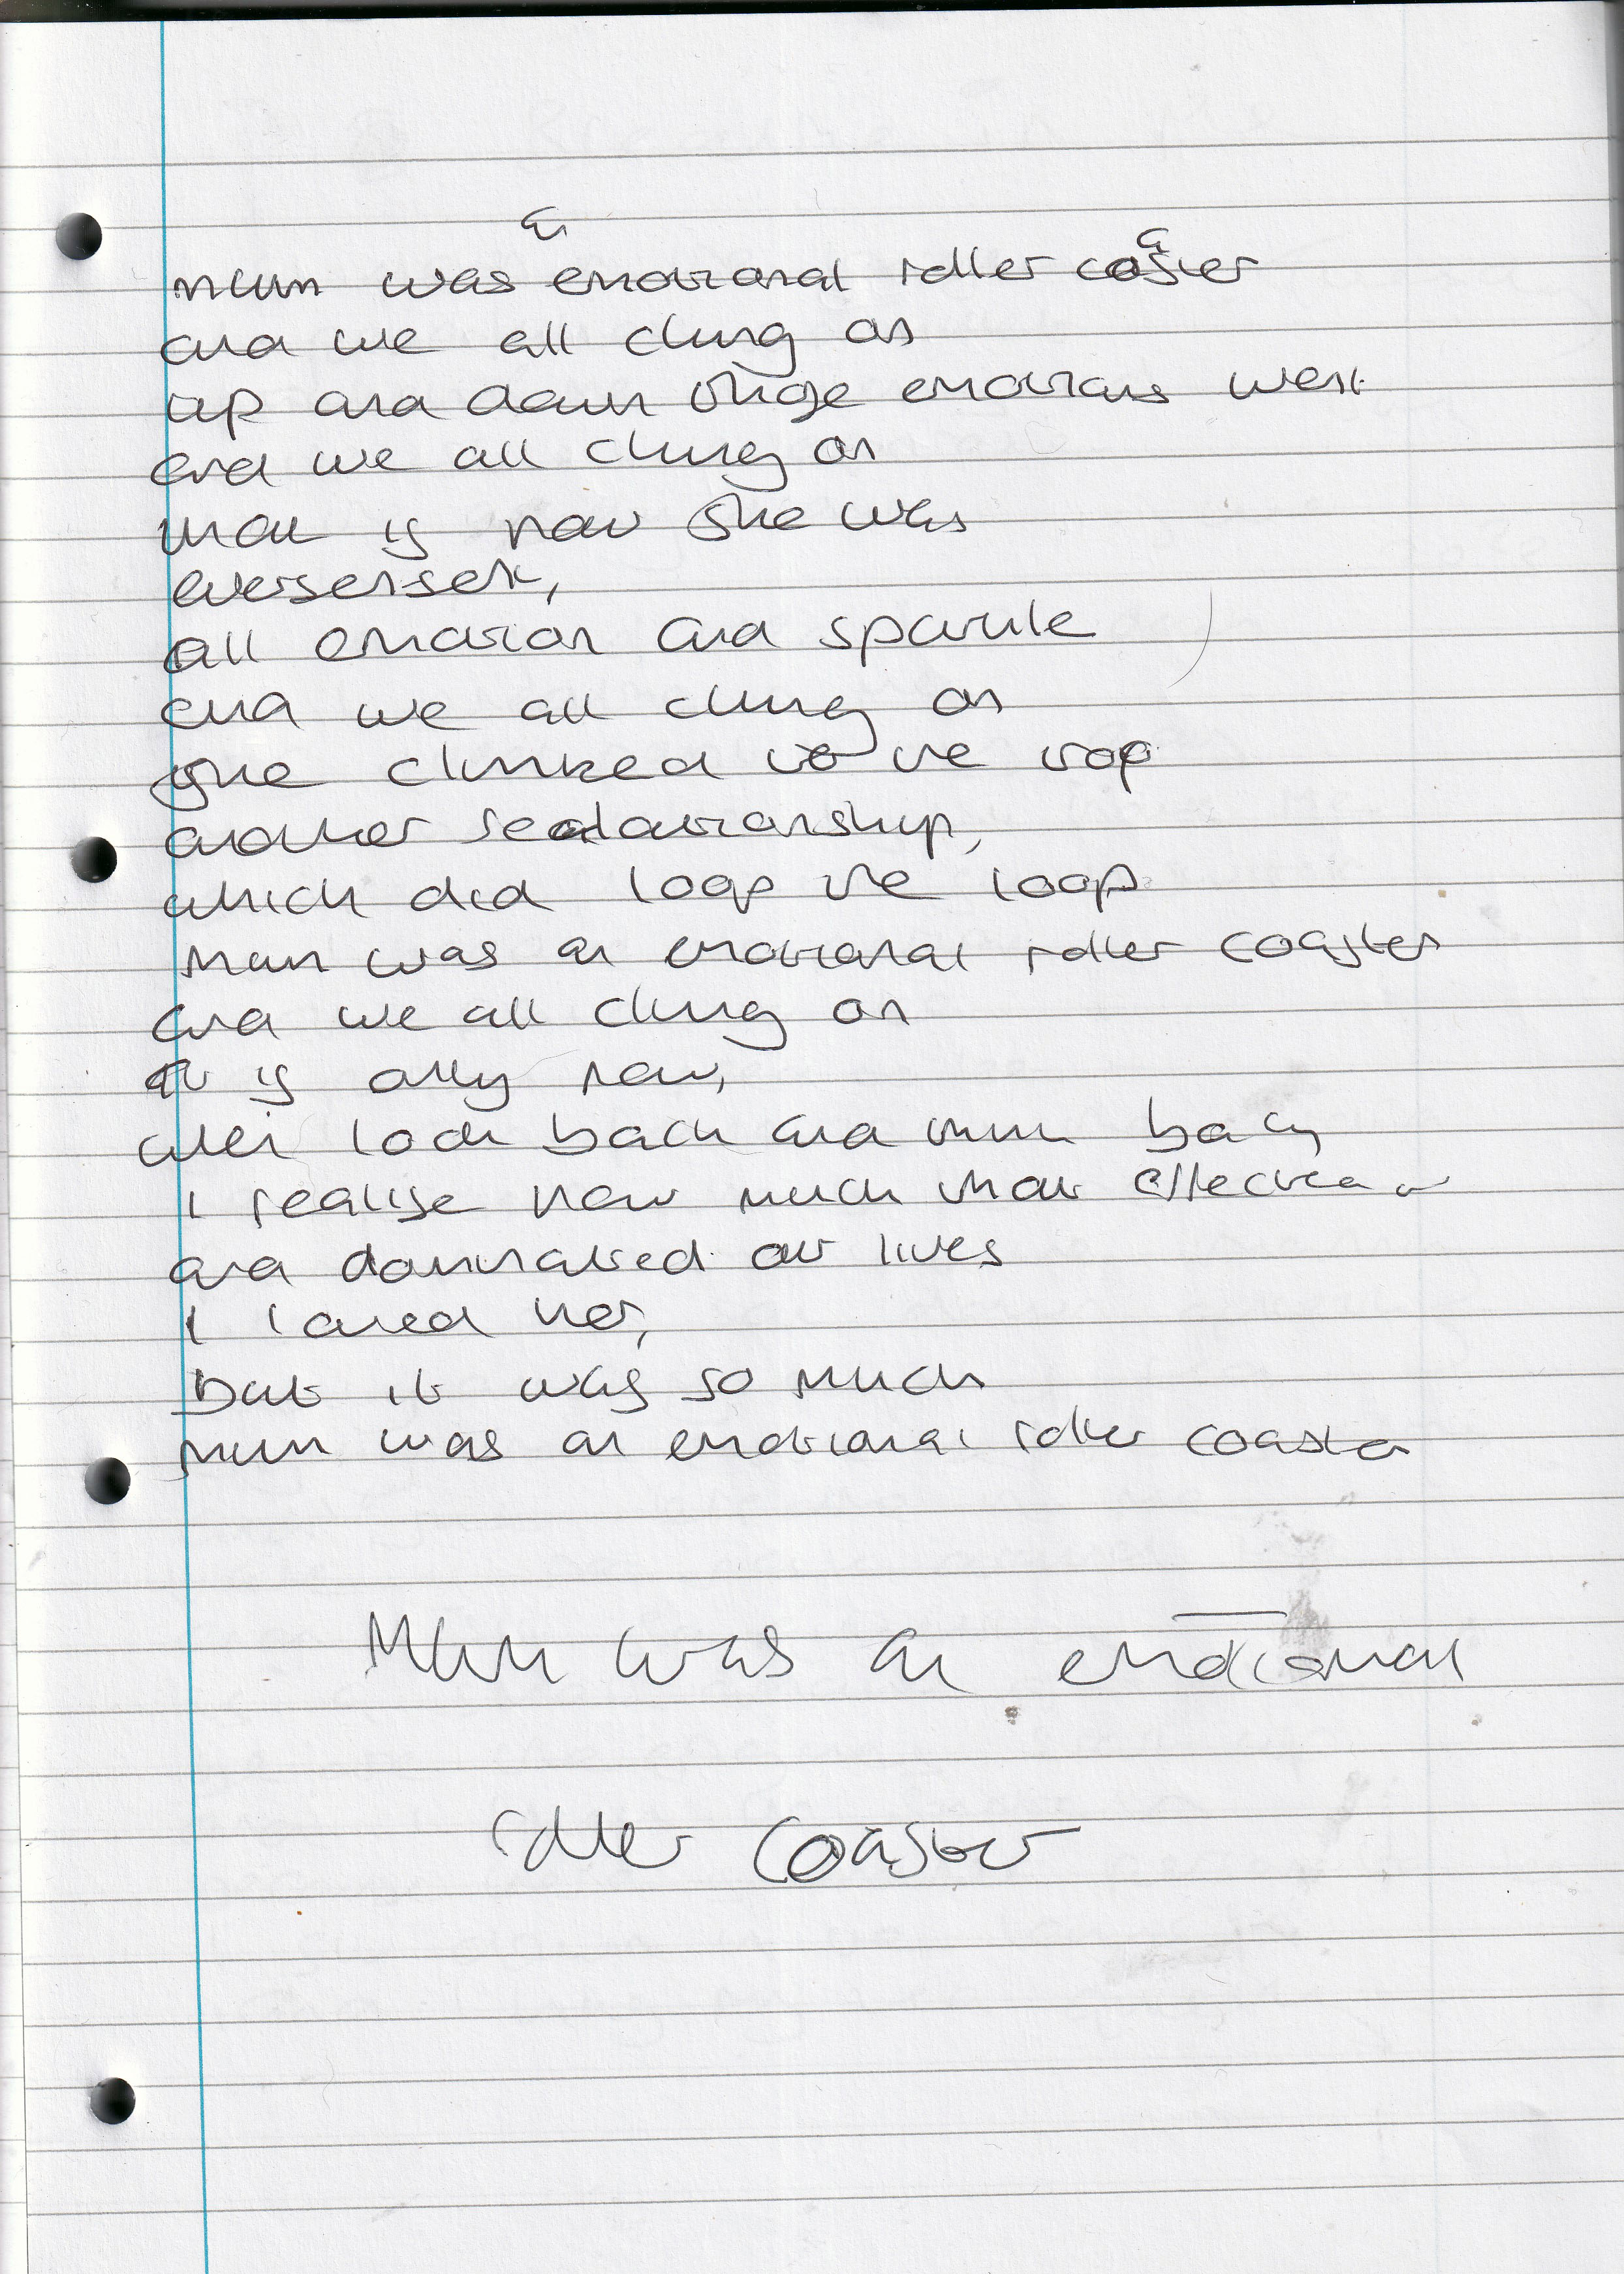 an
mum was emotional roller coaster
and we all clung on
up and down those emotions went
and we all clung on
that is how she was
all emotion and sparkle
and we all clung on
she climbed to the top
another realationship,
which did loop the loop
Mum was an emotional roller coaster
and we all clung on
it is only now,
when look back and think back
I realise how much that effected us
and dominated our lives
I loved her,
but it was so much
mum was an emotional roller coaster
Mum was an emotional
roller coaster